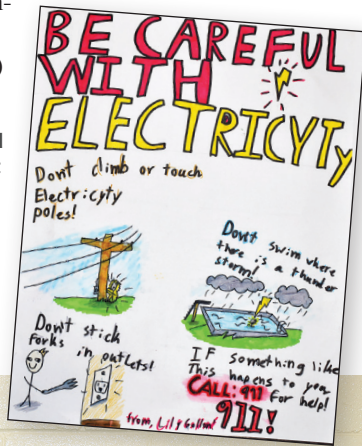 BE CAREFUL
WITH
ELECTRICYTy
Dont climb or touch
Electricyty
poles!
Dont swim where
there is a thunder
storm!
Dont stick
Forks
in outlets!
IF something like
This hapens to you
CALL: 911 for help!
911!
from, Lily